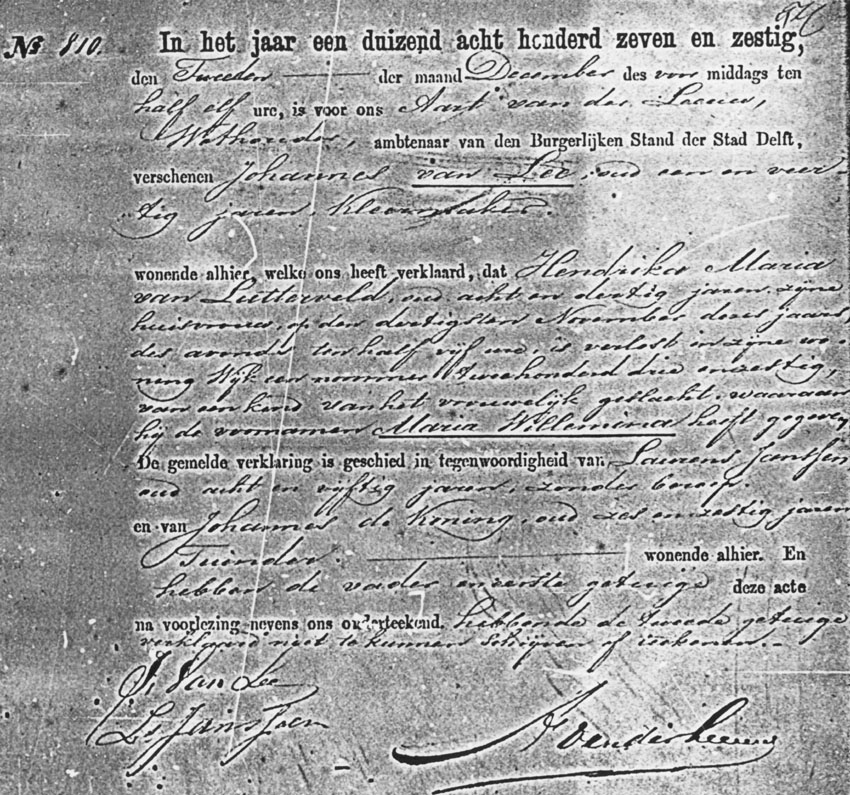 No 810.
In het jaar een duizend acht honderd zeven en zestig,
den Tweeden der maand December des voor middags ten
half elf ure, is voor ons Aart van der Leeuw,
Wethouder, ambtenaar van den Burgerlijken Stand der Stad Delft,
verschenen Johannes van Lee, oud een en veer-
tig jaren, Kleermaker.
wonende alhier, welke ons heeft verklaard, dat Hendrika Maria
van Lutterveld, oud acht en dertig jaren, zijne
huisvrouw, op den dertigsten November dezes jaars,
des avonds ten half vijf ure is verlost in zijne wo-
ning Wijk een nommer Tweehonderd drie en zestig,
van een kind van het vrouwelijk geslacht, waaraan
hij de voornamen Maria Willemina heeft gegeven
De gemelde verklaring is geschied in tegenwoordigheid van Laurens Jansen
oud acht en vijftig jaren, zonder beroep.
en van Johannes de Koning, oud zes en zestig jaren
Tuinder. wonende alhier. En
hebben de vader en eerste getuige deze acte
na voorlezing nevens ons onderteekend, hebbende de tweede getuige
verklaard niet te kunnen schrijven of teekenen.-
J. Van Lee
Ls Jansen
A van der Leeuw